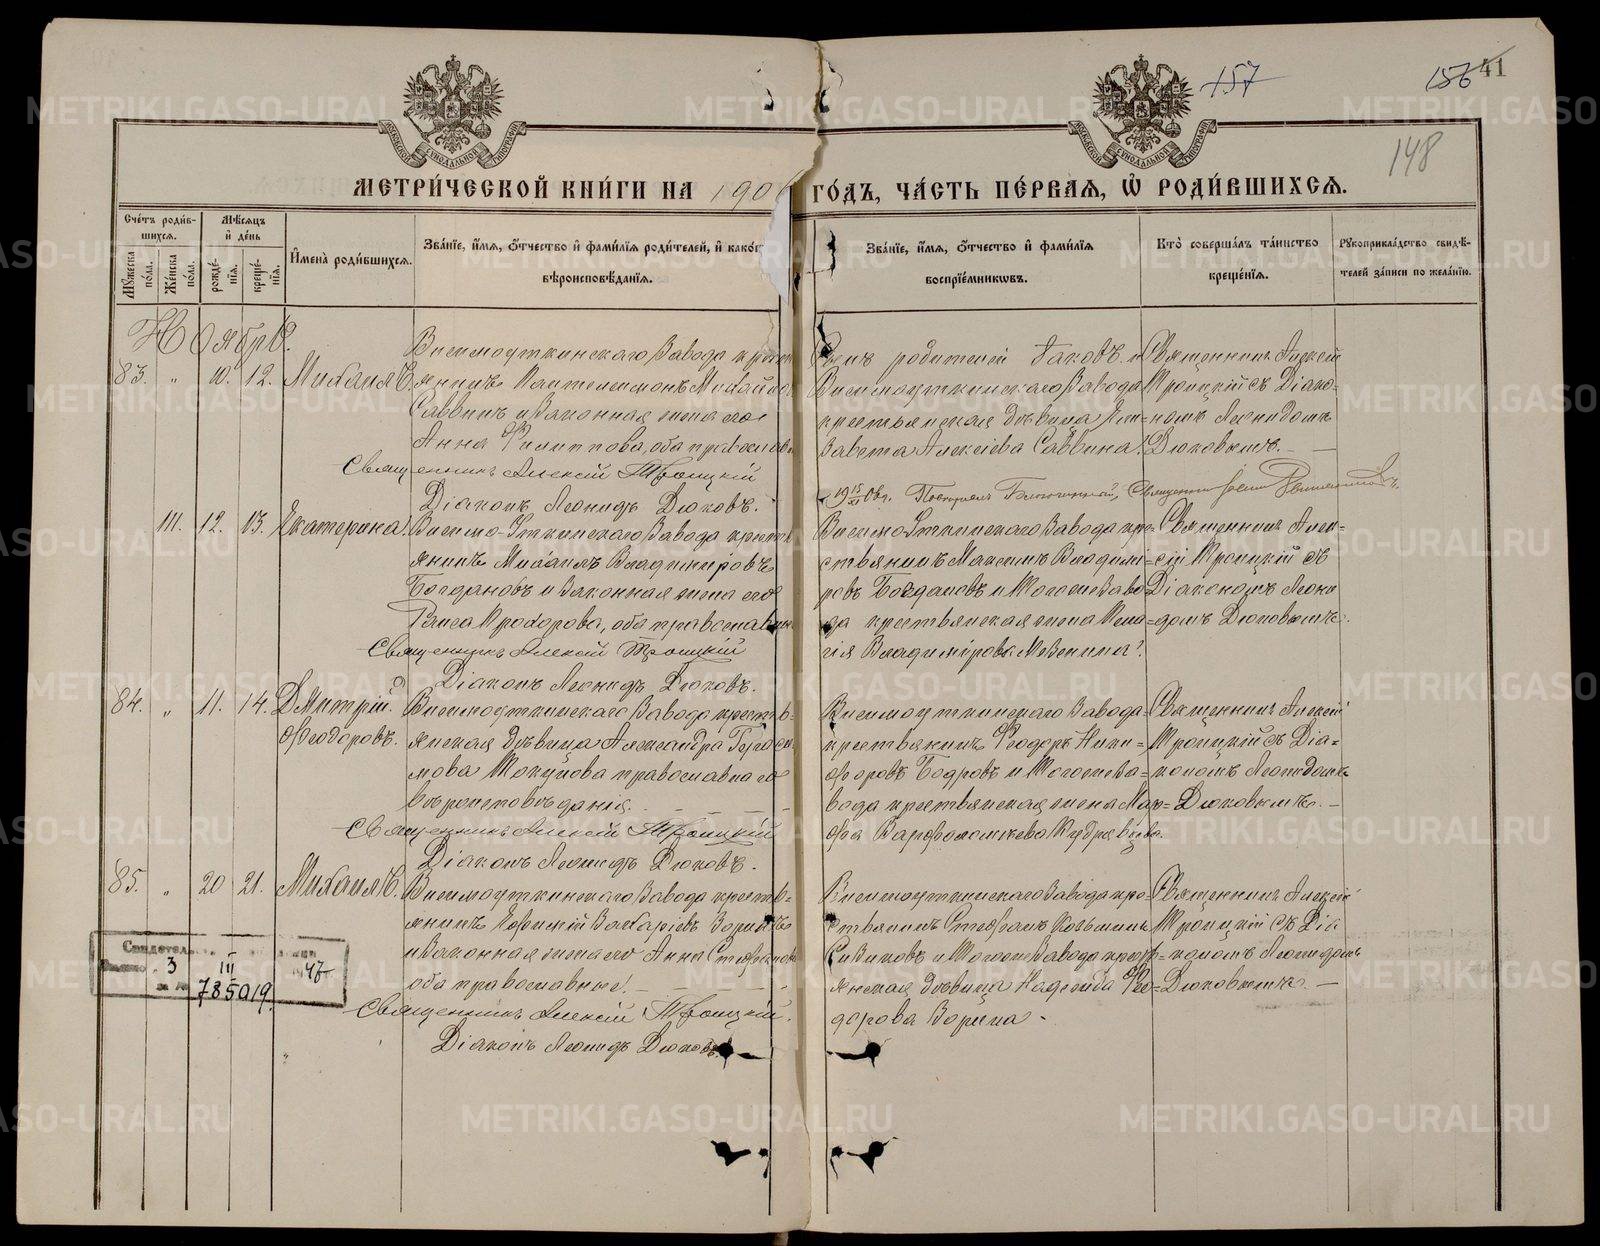 157
156 41
148
МЕТРИ́ЧЕСКОЙ КНИ́ГИ НА 190
ГО́ДЪ, ЧА́СТЬ ПЕ́РВАѦ, Ѡ҆ РОДИ́ВШИХСѦ.
Сче́тъ роди́в-
шихсѧ.
Мѣ́сѧцъ
и҆ де́нь
Мꙋ́жеска по́ла.
Же́нска по́ла.
рожде́нїѧ.
креще́нїѧ.
И҆мена̀ роди́вшихсѧ.
Зва́нїе, и҆́мѧ, ѻ҆́тчество и҆ фами́лїѧ роди́телей, и҆ како́г
вѣроисповѣ́данїѧ.
Зва́нїе, и҆́мѧ, ѻ҆́тчество и҆ фами́лїѧ
воспрїе́мникѡвъ.
Кто̀ соверша́лъ та́инство
креще́нїѧ.
Рꙋкоприкла́дство свидѣ́-
телей за́писи по жела́нїю.
Ноябрь.
83. " 10. 12. Михаилъ.
Висимоуткинскаго завода кресть
янинъ Пантелеимонъ Михайлов
Саввинъ и законная жена его
Анна Филиппова, оба православн
Священникъ Алексій Троицкій
Діаконъ Леонидъ Дюковъ.
родителей Іаковъ и
Висимоуткинскаго завода
крестьянская дѣвица Ели=
завета Алексіева Саввина.
Священникъ Алексій
Троицкій съ Діако=
номъ Леонидомъ
Дюковымъ.
Благочинный, Священникъ
111. 12. 13. Екатерина.
Висимо-Уткинскаго завода кресть
янинъ Михаилъ Владиміровъ
Богдановъ и законная жена его
Раиса Прохорова, оба православн
Священникъ Алексій Троицкій
Діаконъ Леонидъ Дюковъ.
Висимо-Уткинскаго завода кре=
стьянинъ Максимъ Владими=
ровъ Богдановъ и тогоже заво
да крестьянская жена Пела=
гія Владимірова Мезенина.
Священникъ Алек=
сій Троицкій съ
Діакономъ Леони
домъ Дюковымъ.
84. " 11. 14. Дмитрій
Ѳеодоровъ.
Висимоуткинскаго завода кресть=
янская дѣвица Александра Гераси
мова Токунова православнаго
вѣроисповѣданія.
Священникъ Алексій Троицкій
Діаконъ Леонидъ Дюковъ.
Висимоуткинскаго завода
крестьянинъ Ѳеодоръ Ники=
форовъ Бодровъ и тогоже за=
вода крестьянская жена Мар=
фа Варфоломеева Кудрявцева.
Священникъ Алексій
Троицкій съ Діа=
кономъ Леонидомъ
Дюковымъ.
85. " 20 21. Михаилъ.
Висимоуткинскаго завода кресть=
янинъ Ефимій Захаріевъ Зоринъ
и законная жена его Анна Стефанова
оба православные.
Священникъ Алексій Троицкій.
Діаконъ Леонидъ Дюковъ.
Висимоуткинскаго завода кре=
стьянинъ Стефанъ Козьминъ
Сивиковъ и тогоже завода кресть=
янская дѣвица Надежда Ѳео=
дорова Зорина.
Священникъ Алексій
Троицкій съ Діа
кономъ Леонидомъ
Дюковымъ.
3 III 47
785019
METRIKI.GASO-URAL.RU